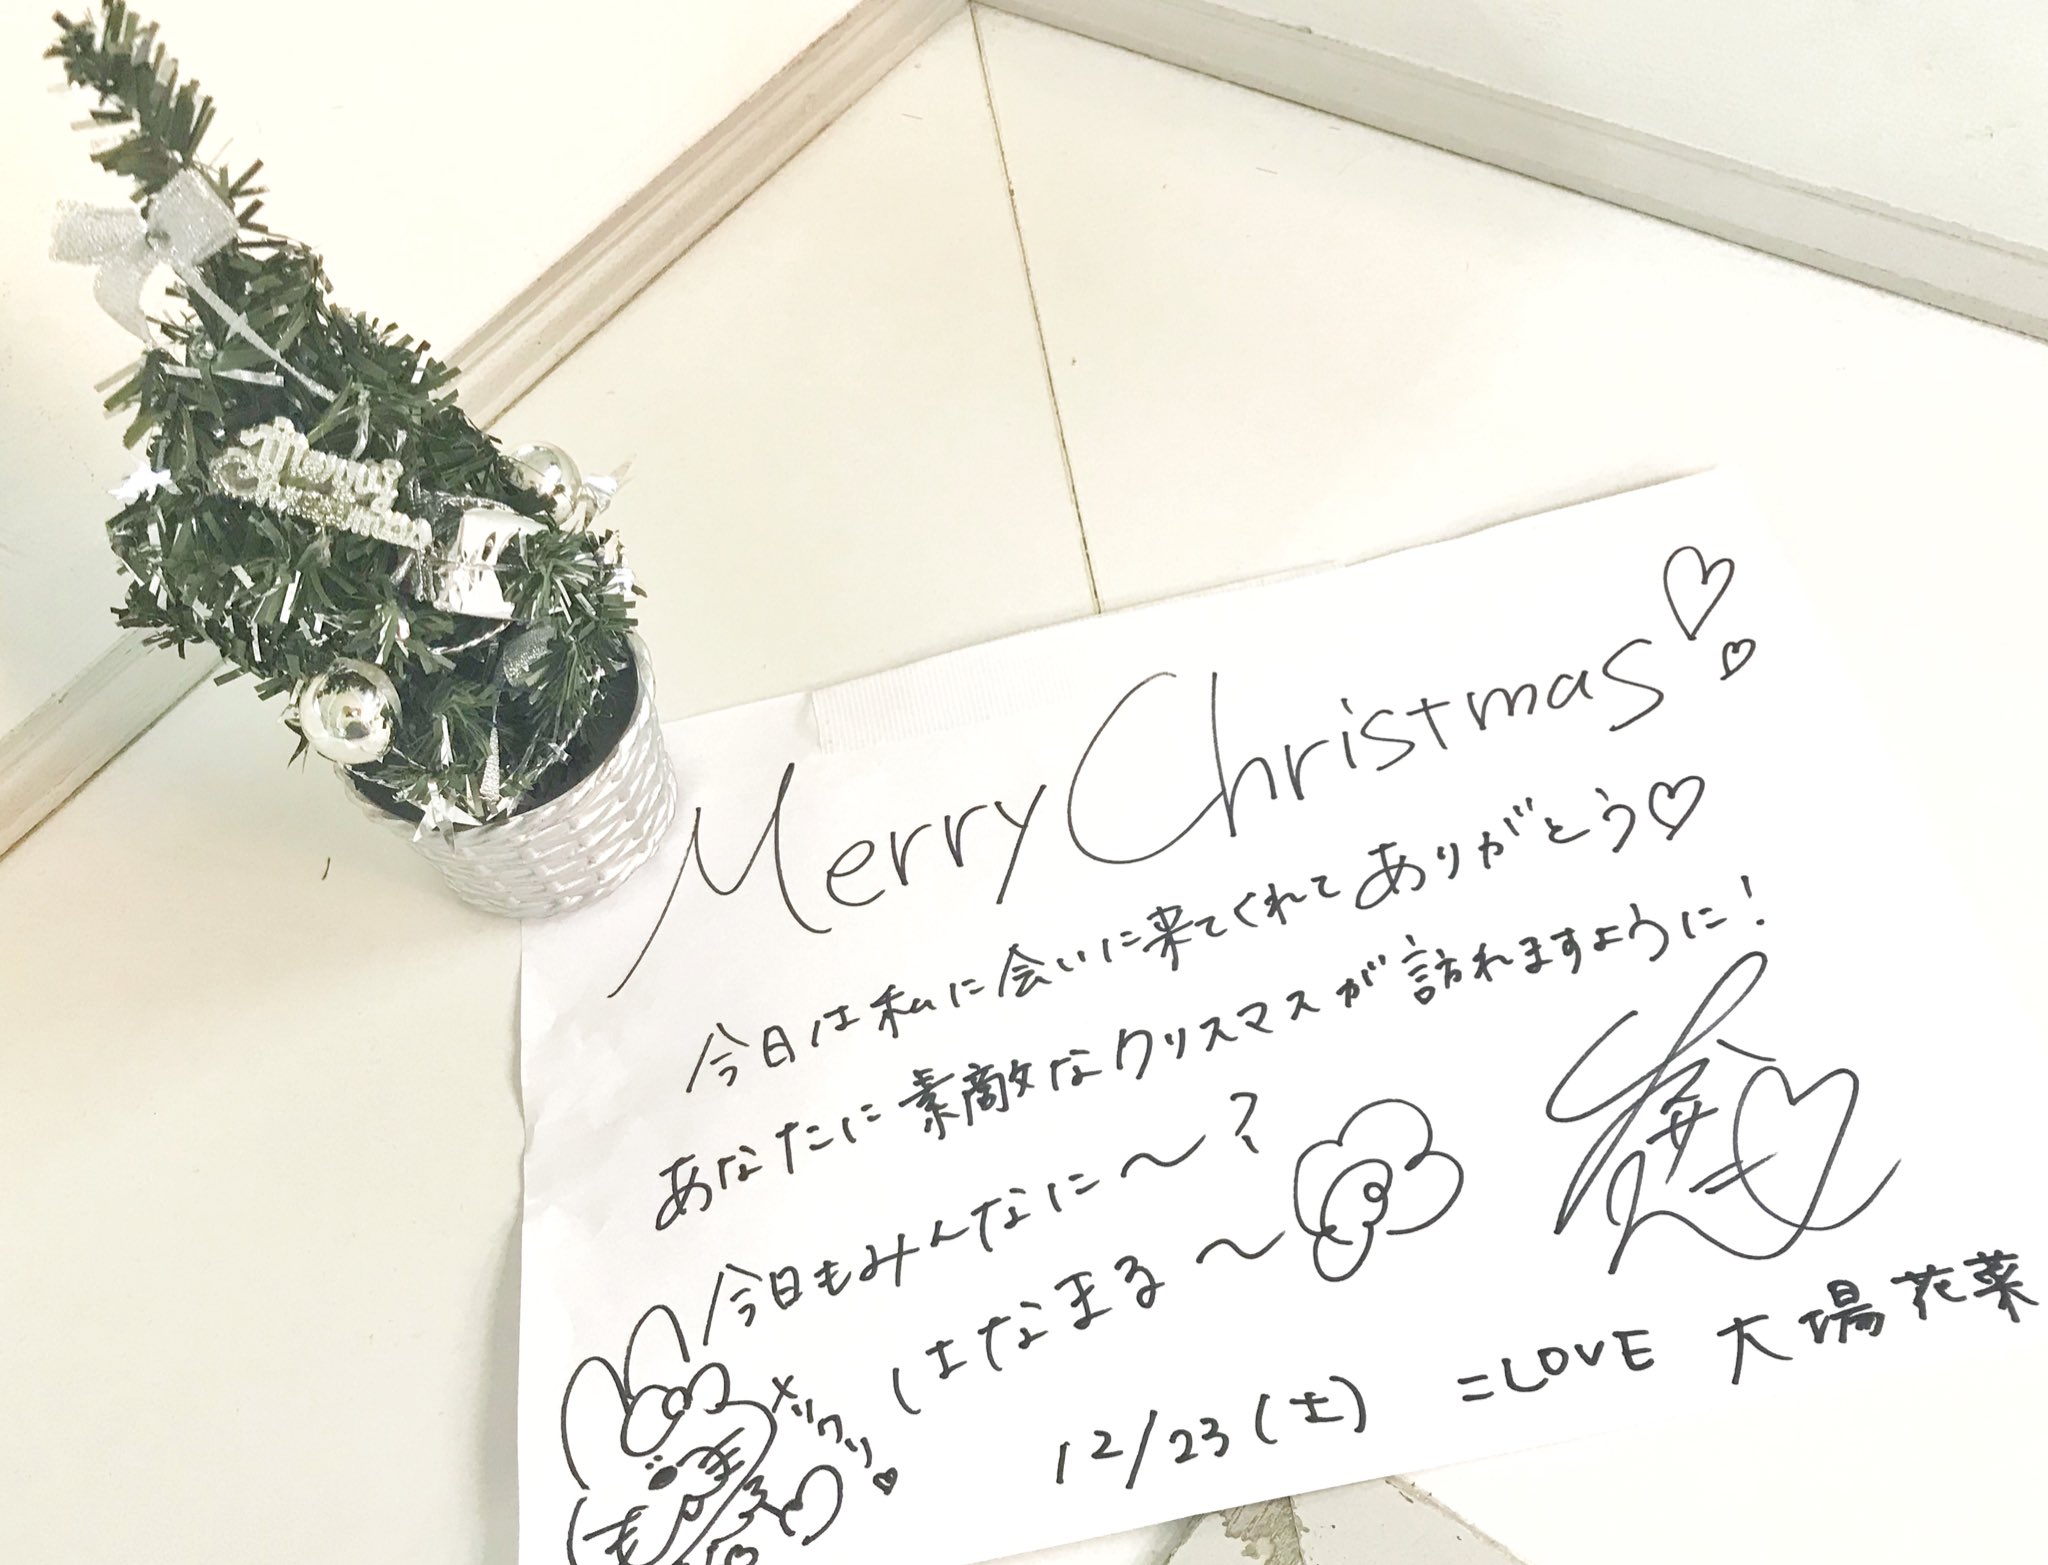 Merry Christmas
Merry Christmas♡♡
今日は私に会いに来てくれてありがとう♡
あなたに素敵なクリスマスが訪れますように!
今日もみんなに〜?
はなまる〜
メリクリ♡
12/23(土) =LOVE 大場花菜